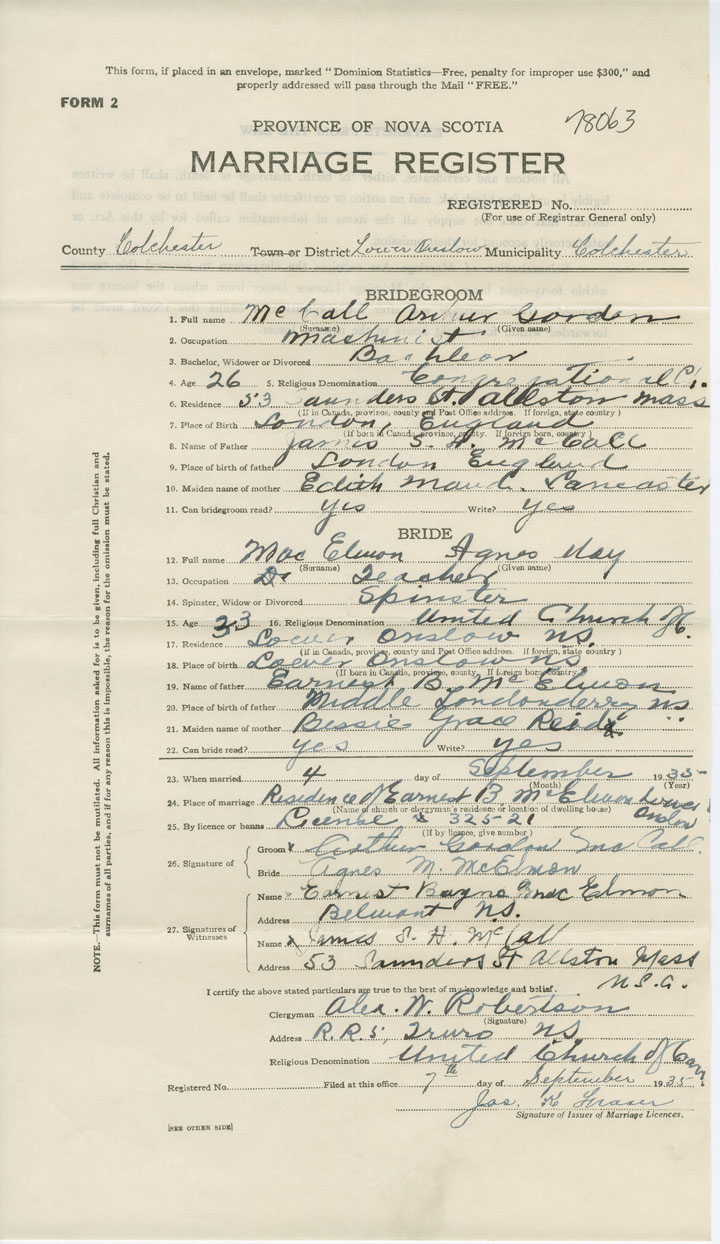 This form, if placed in an envelope, marked "Dominion Statistics—Free, penalty for improper use $300," and
properly addressed will pass through the Mail "FREE."
FORM 2
78063
PROVINCE OF NOVA SCOTIA
MARRIAGE REGISTER
REGISTERED No.
(For use of Registrar General only)
County Colchester Town or District Lower Onslow Municipality Colchester
BRIDEGROOM
1. Full name McCall Arthur Gordon
(Surname) (Given name)
2. Occupation Machinist
3. Bachelor, Widower or Divorced Bachleor
4. Age 26 5. Religious Denomination Congregational Ch.
6. Residence 53 Saunders St. Allston Mass
(If in Canada, province, county and Post Office address. If foreign, state country)
7. Place of Birth London, England
(If born in Canada, province, county. If foreign born, country)
8. Name of Father James S. H. McCall
9. Place of birth of father London England
10. Maiden name of mother Edith Maud. Lancaster
11. Can bridegroom read? yes Write? yes
BRIDE
12. Full name Mac Elmon Agnes May
(Surname) (Given name)
13. Occupation Teacher
14. Spinster, Widow or Divorced Spinster
15. Age 33 16. Religious Denomination United Church of C.
17. Residence Lower Onslow N.S.
(If in Canada, province, county and Post Office address. If foreign, state country)
18. Place of birth Lower Onslow N.S
(If born in Canada, province, county. If foreign born, country)
19. Name of father Earnest B. McElmon
20. Place of birth of father Middle Londonderry N.S
21. Maiden name of mother Bessie Grace Reid
22. Can bride read? yes Write? yes
23. When married 4 day of September 1935
(Month) (Year)
24. Place of marriage Residence of Earnest B. McElmon Lower Onslow
(Name of church or clergyman's residence or location of dwelling house)
25. By licence or banns License # 32521
(If by licence, give number)
26. Signature of
Groom x Arthur Gordon McCall
Bride Agnes M. McElmon
27. Signatures of Witnesses
Name x Earnest Bayne MacElmon
Address Belmont N.S.
Name x James S. H. McCall
Address 53 Saunders St Allston Mass
U.S.A.
I certify the above stated particulars are true to the best of my knowledge and belief.
Clergyman Alex. W. Robertson
(Signature)
Address R.R.5, Truro N.S
Religious Denomination United Church of Can.
Registered No. Filed at this office 7th day of September 1935
Jas. K Fraser
Signature of Issuer of Marriage Licences.
[SEE OTHER SIDE]
NOTE.—This form must not be mutilated. All information asked for is to be given, including full Christian and
surnames of all parties, and if for any reason this is impossible, the reason for the omission must be stated.